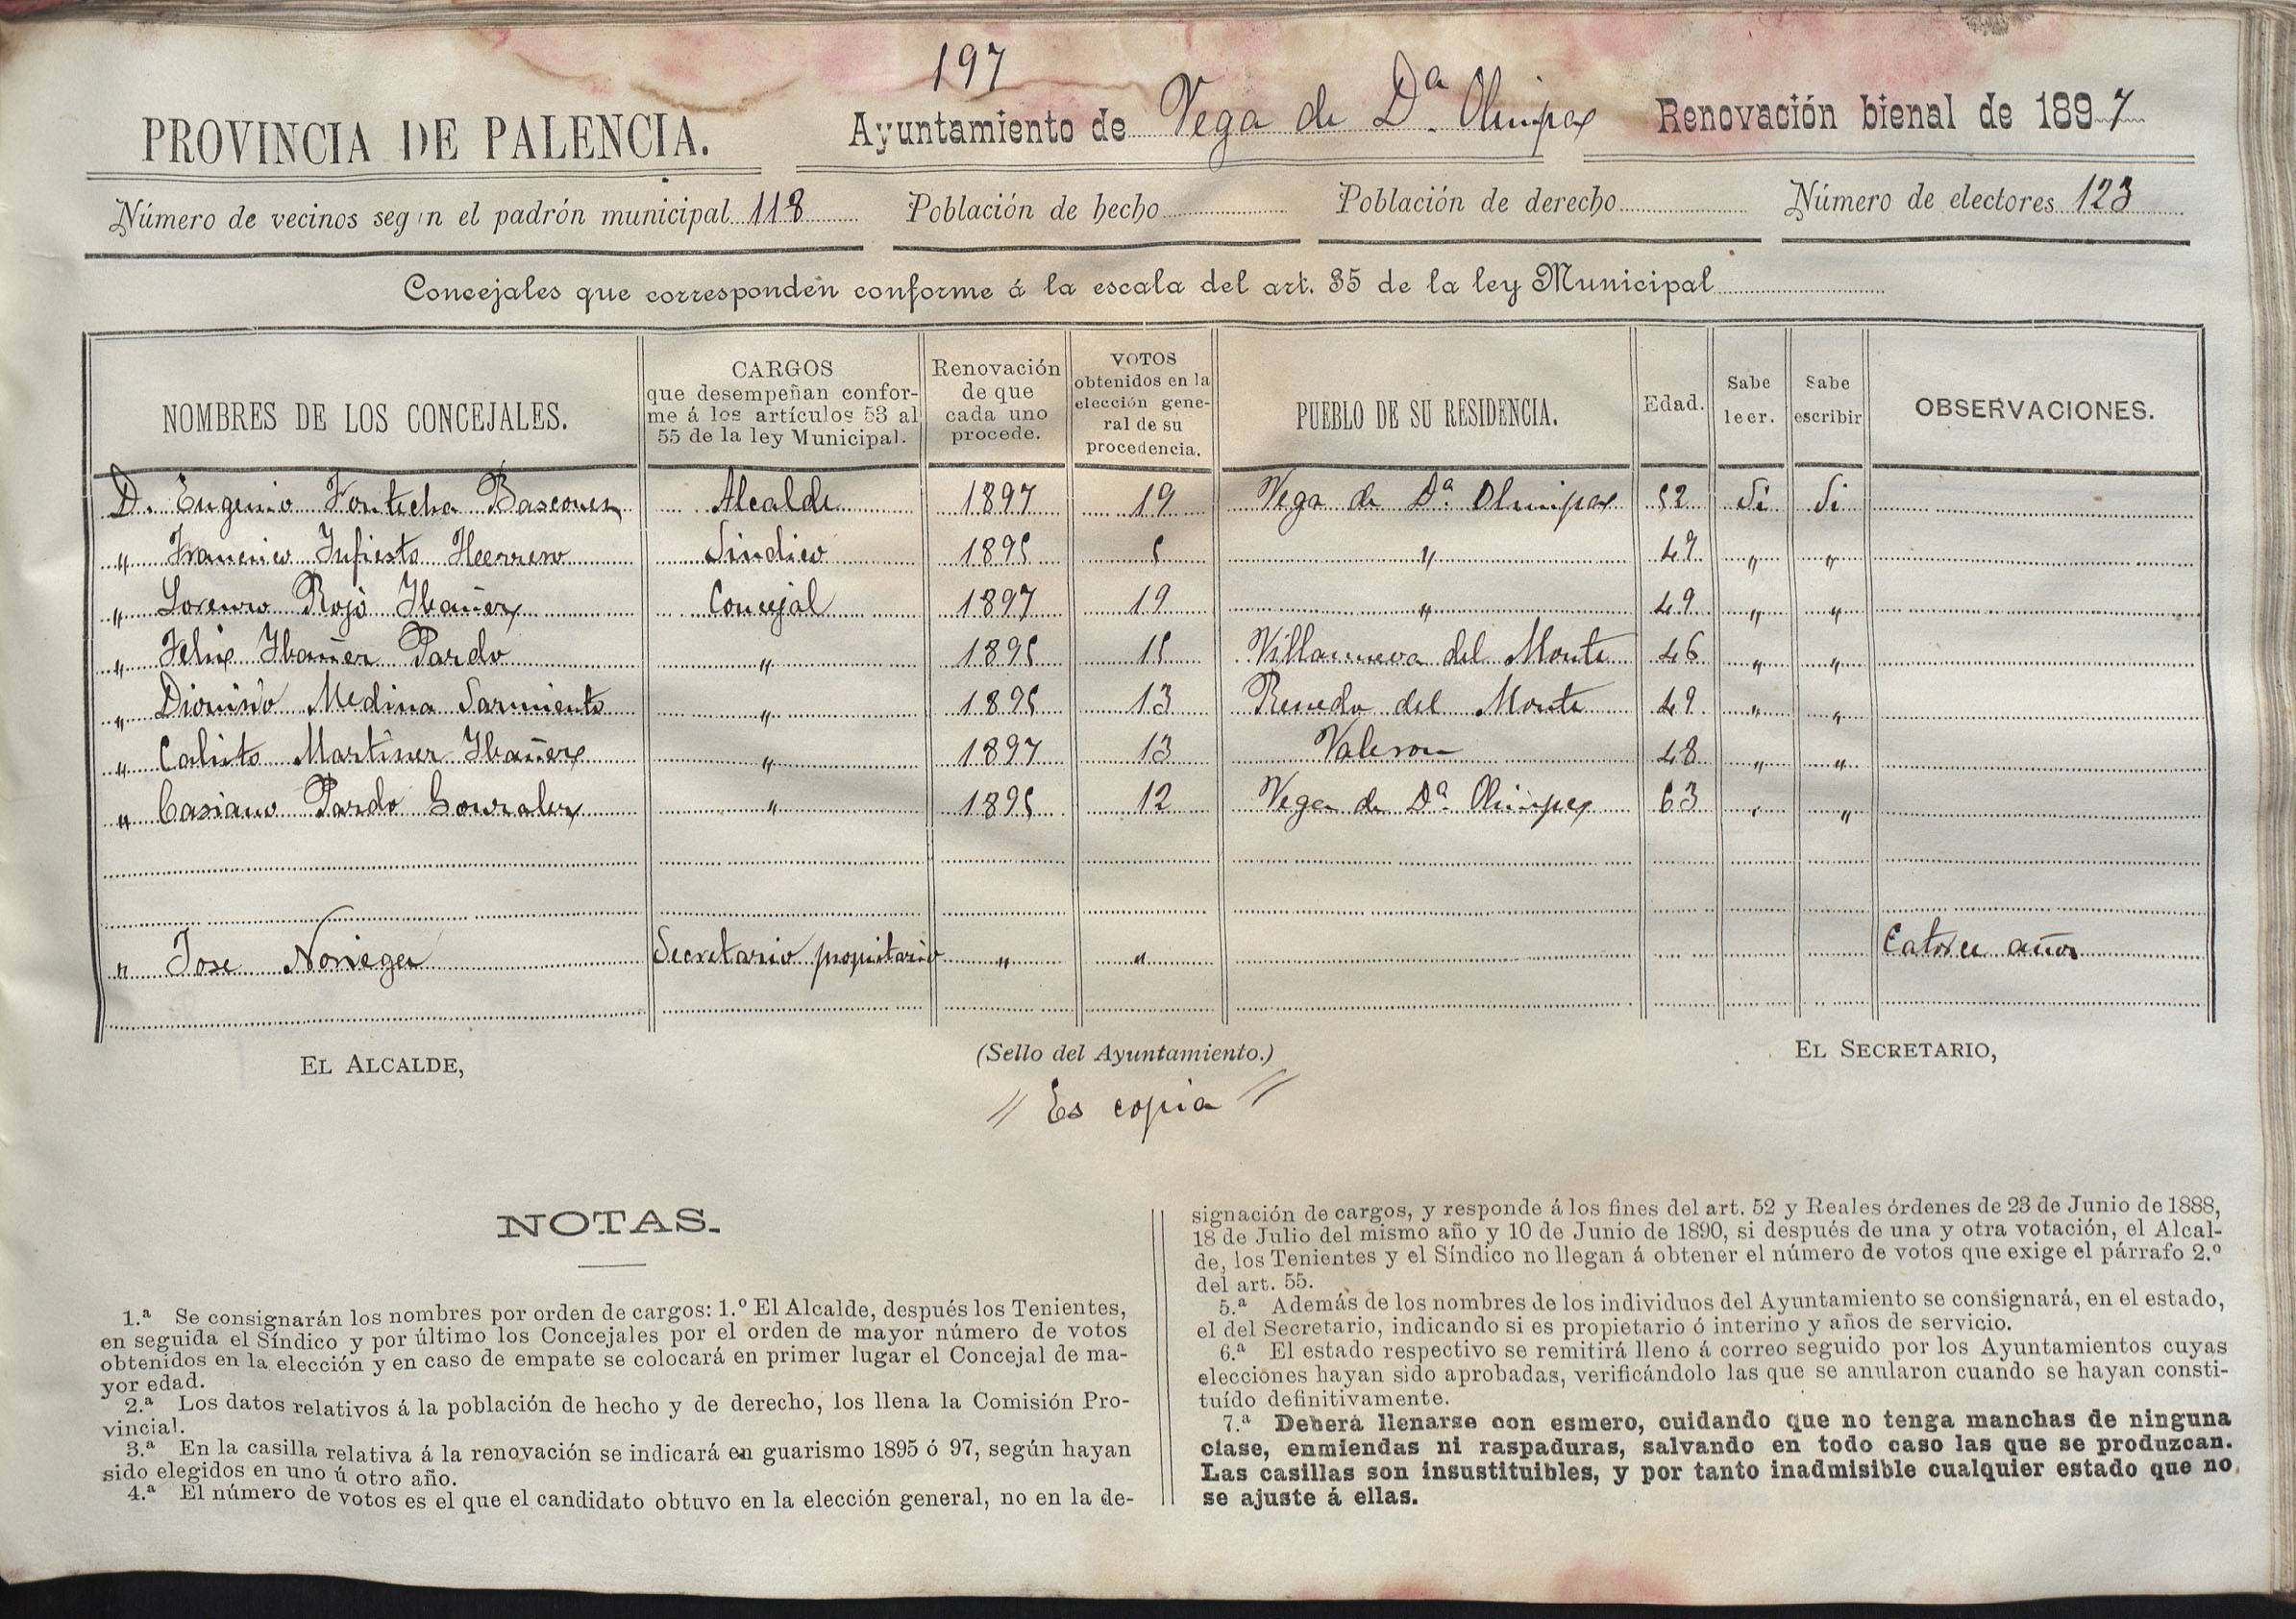 197
PROVINCIA DE PALENCIA. Ayuntamiento de Vega de Dª Olimpa Renovación bienal de 1897
Número de vecinos seg n el padrón municipal 118 Población de hecho Población de derecho Número de electores 123
Concejales que corresponden conforme á la escala del art. 35 de la ley Municipal
NOMBRES DE LOS CONCEJALES. CARGOS que desempeñan conforme á los artículos 53 al 55 de la ley Municipal. Renovación de que cada uno procede. VOTOS obtenidos en la elección general de su procedencia. PUEBLO DE SU RESIDENCIA. Edad. Sabe leer. Sabe escribir OBSERVACIONES.
D. Eugenio Fontecha Bascones Alcalde 1897 19 Vega de Dª Olimpa 52 Si Si
" Francisco Infiesta Herrero Sindico 1895 5 " 49 " "
" Lorenzo Rojo Ibañez Concejal 1897 19 " 49 " "
" Felix Ibañez Pardo " 1895 15 Villanueva del Monte 46 " "
" Dionisio Medina Sarmiento " 1895 13 Renedo del Monte 49 " "
" Calisto Martinez Ibañez " 1897 13 48 " "
" Casiano Pardo Gonzalez " 1895 12 Vega de Dª Olimpa 63 " "
" Jose Noriega Secretario propietario " " Catorce años
EL ALCALDE, (Sello del Ayuntamiento.) EL SECRETARIO,
// Es copia //
NOTAS.
1.ª Se consignarán los nombres por orden de cargos: 1.º El Alcalde, después los Tenientes,
en seguida el Síndico y por último los Concejales por el orden de mayor número de votos
obtenidos en la elección y en caso de empate se colocará en primer lugar el Concejal de ma-
yor edad.
2.ª Los datos relativos á la población de hecho y de derecho, los llena la Comisión Pro-
vincial.
3.ª En la casilla relativa á la renovación se indicará en guarismo 1895 ó 97, según hayan
sido elegidos en uno ú otro año.
4.ª El número de votos es el que el candidato obtuvo en la elección general, no en la de-
signación de cargos, y responde á los fines del art. 52 y Reales órdenes de 23 de Junio de 1888,
18 de Julio del mismo año y 10 de Junio de 1890, si después de una y otra votación, el Alcal-
de, los Tenientes y el Síndico no llegan á obtener el número de votos que exige el párrafo 2.º
del art. 55.
5.ª Además de los nombres de los individuos del Ayuntamiento se consignará, en el estado,
el del Secretario, indicando si es propietario ó interino y años de servicio.
6.ª El estado respectivo se remitirá lleno á correo seguido por los Ayuntamientos cuyas
elecciones hayan sido aprobadas, verificándolo las que se anularon cuando se hayan consti-
tuído definitivamente.
7.ª Deberá llenarse con esmero, cuidando que no tenga manchas de ninguna
clase, enmiendas ni raspaduras, salvando en todo caso las que se produzcan.
Las casillas son insustituibles, y por tanto inadmisible cualquier estado que no
se ajuste á ellas.